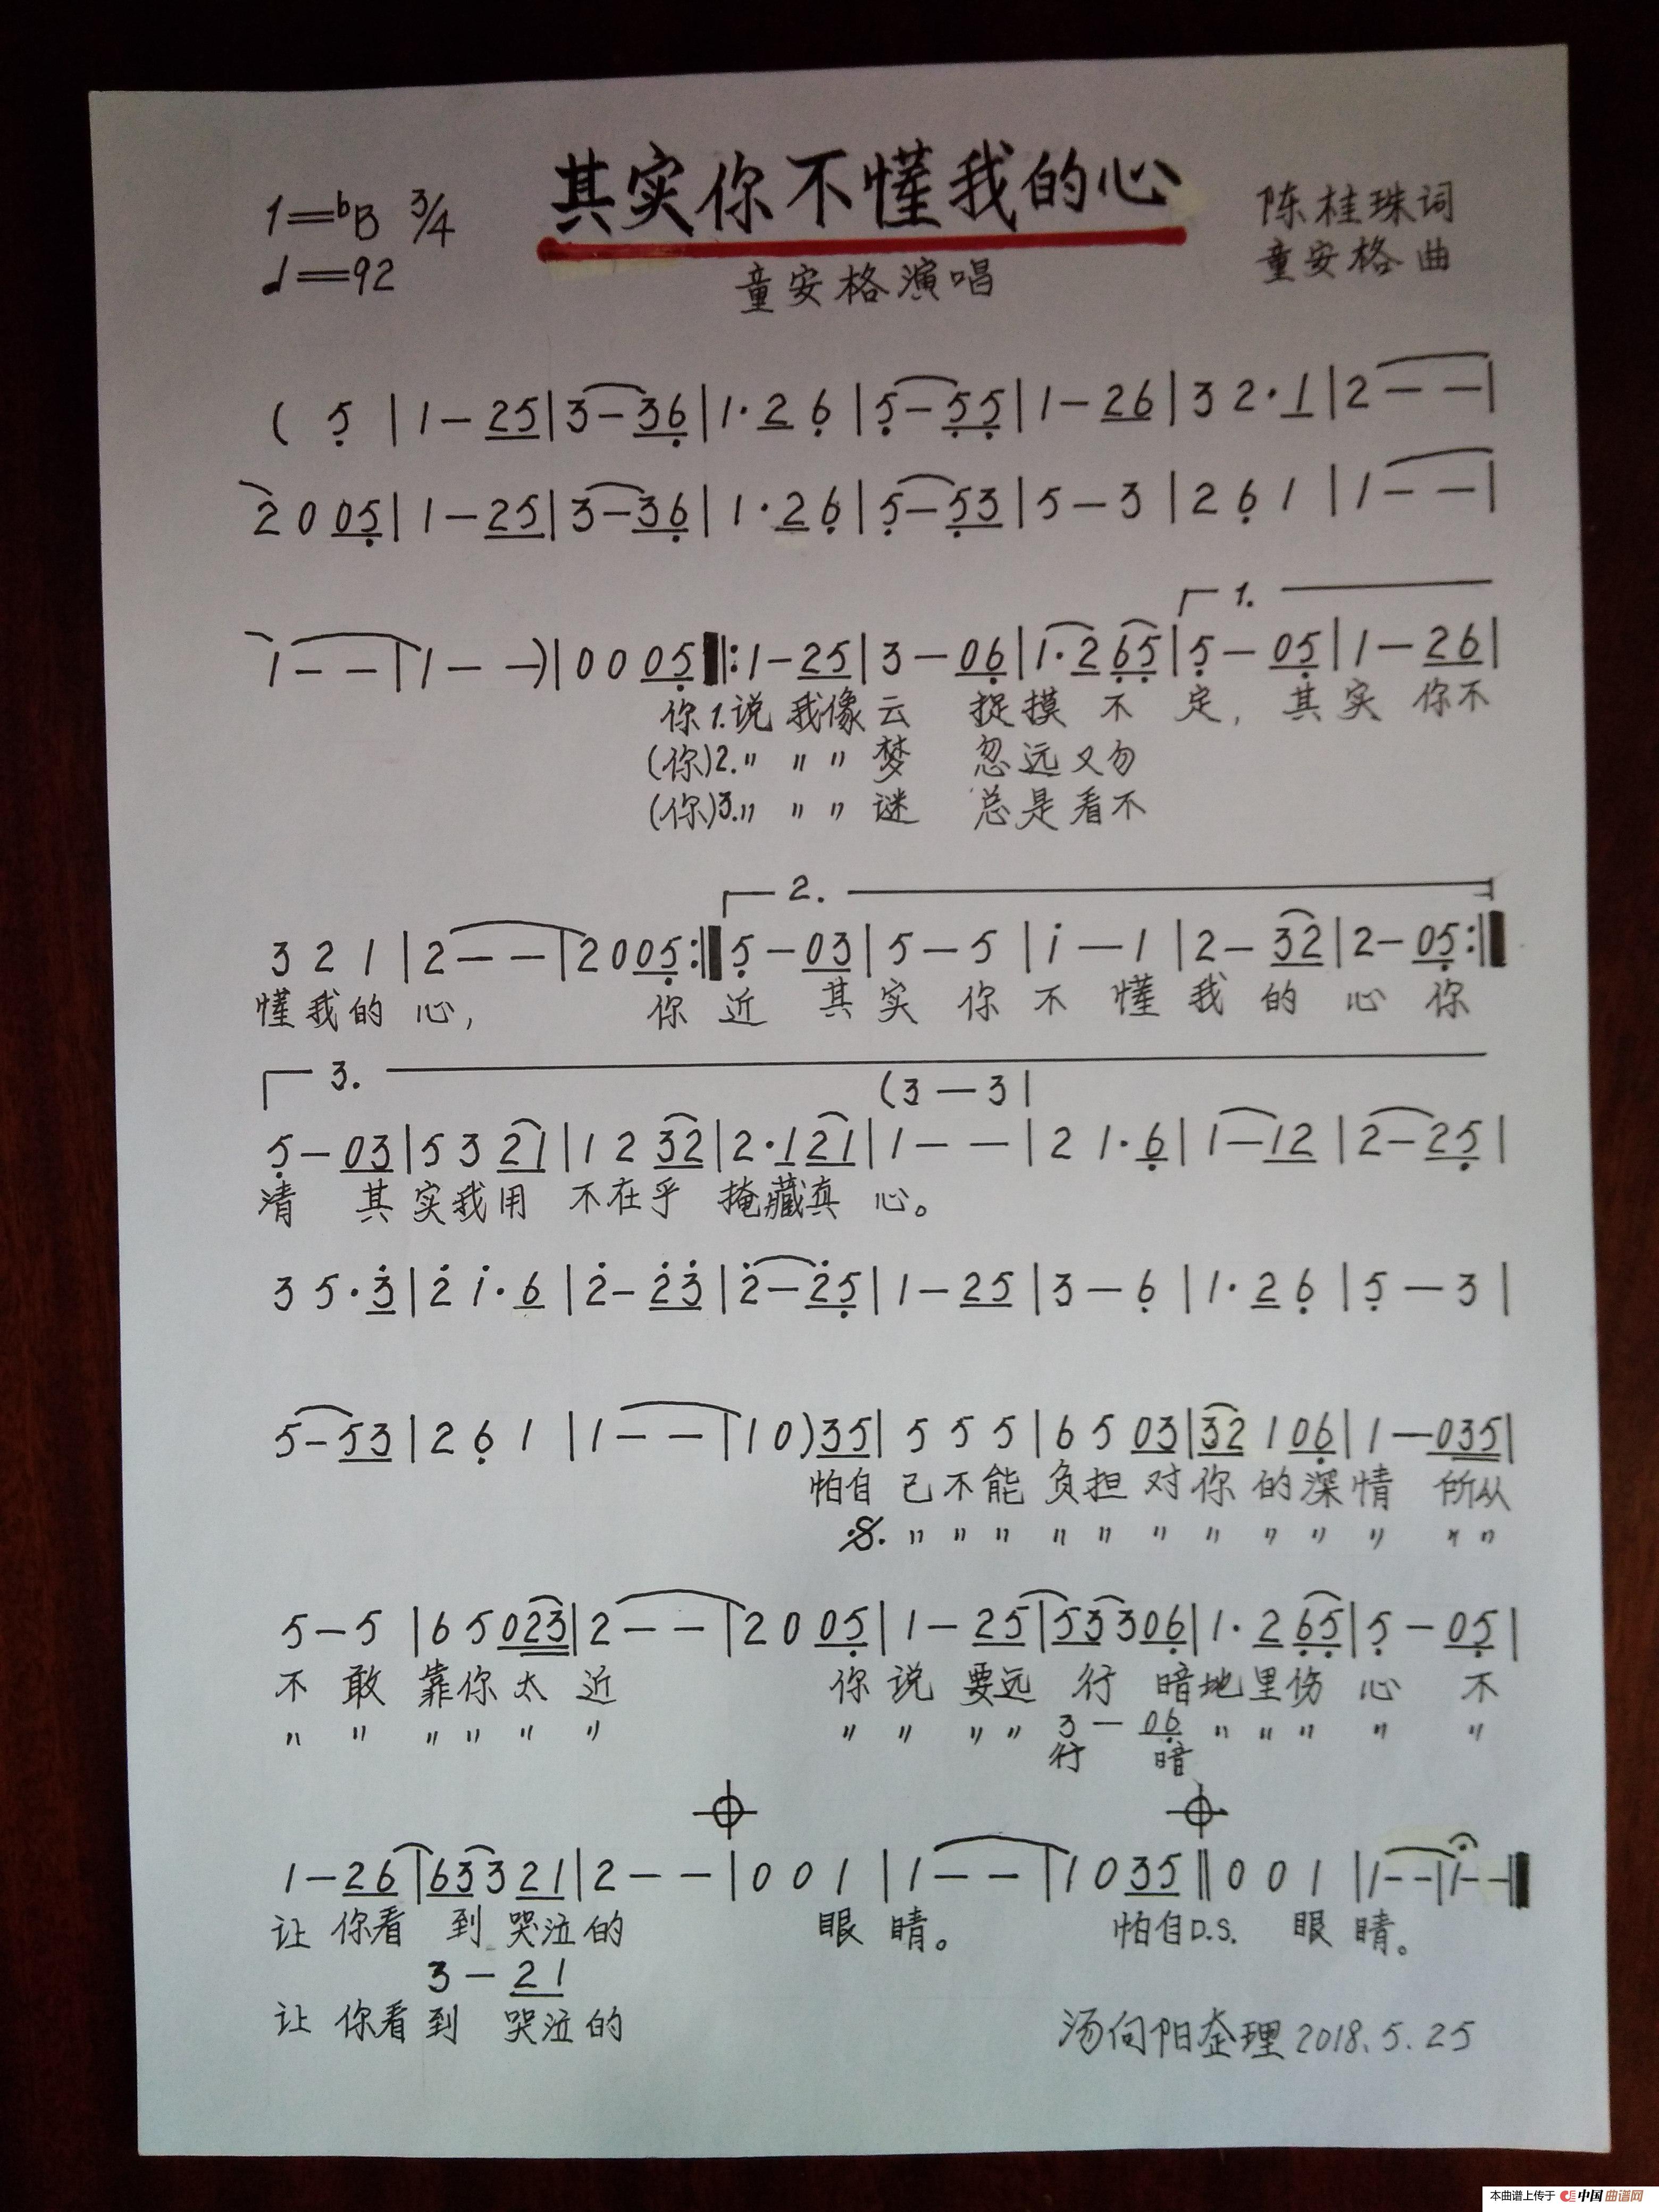 其实你不懂我的心
1=♭B 3/4
♩=92
陈桂珠词
童安格曲
童安格演唱
( 5̣ | 1 - 25 | 3 - 36̣ | 1·2 6̣ | 5̣ - 5̣5̣ | 1 - 26 | 3 2·1 | 2 - - |
2 0 05̣ | 1 - 25 | 3 - 36̣ | 1·2 6̣ | 5̣ - 5̣3 | 5 - 3 | 2 6̣ 1 | 1 - - |
1.
1 - - | 1 - - ) | 0 0 05̣ ‖: 1 - 25 | 3 - 06̣ | 1·2 6̣5̣ | 5̣ - 05̣ | 1 - 26 |
你1.说 我像云 捉摸 不 定, 其实 你不
(你)2." " " 梦 忽远又勿
(你)3." " " 谜 总是看不
2.
3 2 1 | 2 - - | 2 0 05̣ :‖ 5̣ - 03 | 5 - 5 | i - 1 | 2 - 32 | 2 - 05̣ :‖
懂我的 心, 你 近 其 实 你 不 懂 我 的 心 你
3.
(3 - 3 |
5̣ - 03 | 5 3 21 | 1 2 32 | 2·1 21 | 1 - - | 2 1·6̣ | 1 - 12 | 2 - 25̣ |
清 其 实我用 不在乎 掩藏真 心。
3 5·3̇ | 2̇ i·6 | 2̇ - 2̇3̇ | 2̇ - 2̇5̣ | 1 - 25 | 3 - 6̣ | 1·2 6̣ | 5̣ - 3 |
5 - 53 | 2 6̣ 1 | 1 - - | 1 0 ) 35 | 5 5 5 | 6 5 03 | 32 1 06̣ | 1 - 035 |
怕自 己不能 负担 对你 的深情 所从
𝄋. " " " " " " " " " " " "
5 - 5 | 6 5 023 | 2 - - | 2 0 05̣ | 1 - 25 | 53 3 06̣ | 1·2 6̣5̣ | 5̣ - 05̣ |
不 敢 靠你太 近 你 说 要远 行 暗地里伤 心 不
" " " " " " " " " " 3 - 06̣ " " " " "
行 暗
1 - 26 | 63 3 21 | 2 - - | 0 0 1 | 1 - - | 1 0 35 ‖ 0 0 1 | 1 - - | 1 - - ‖
让 你看 到 哭泣的 眼 睛。 怕自D.S. 眼 睛。
3 - 21
让 你看到 哭泣的
汤向阳夲理 2018.5.25
本曲谱上传于 中国曲谱网